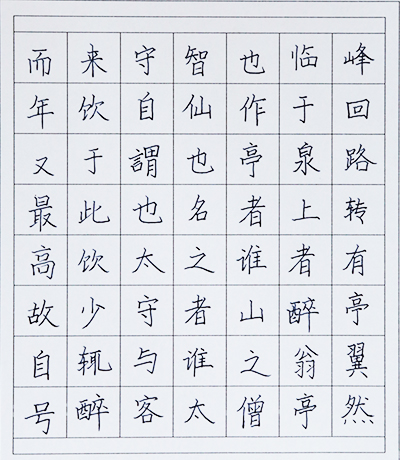 峰回路转有亭翼然
临于泉上者醉翁亭
也作亭者谁山之僧
智仙也名之者谁太
守自謂也太守与客
来饮于此饮少辄醉
而年又最高故自号